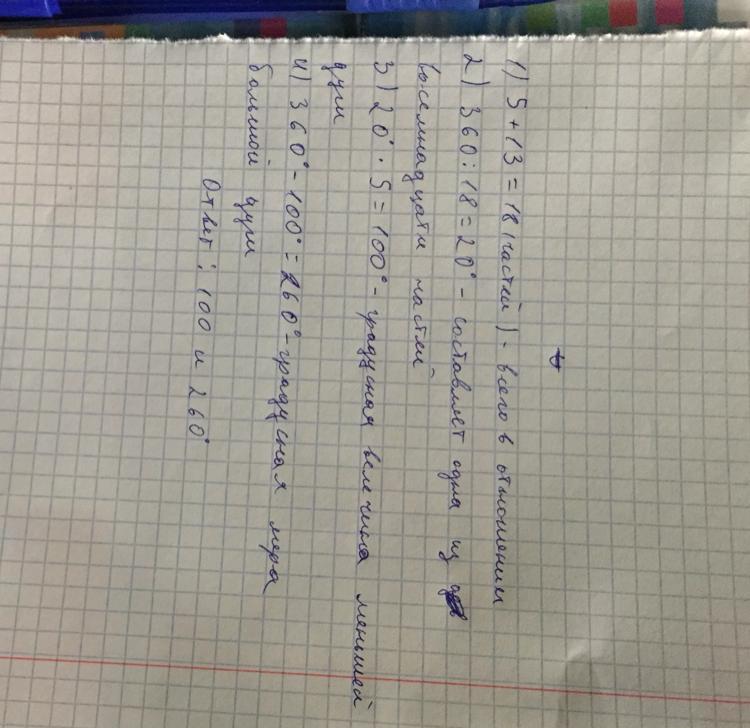 1) 5 + 13 = 18 (частей) - всего в отношении
2) 360 : 18 = 20° - составляет одна из
восемнадцати частей
3) 20° · 5 = 100° - градусная величина меньшей
дуги
4) 360° - 100° = 260° - градусная мера
большой дуги
Ответ: 100 и 260°